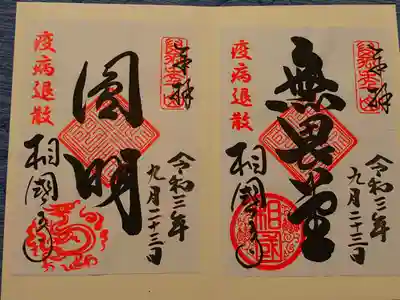 奉拝
無畏堂
疫病退散
相國寺
令和三年
九月二十三日
相国
奉拝
圓明
疫病退散
相國寺
令和三年
九月二十三日